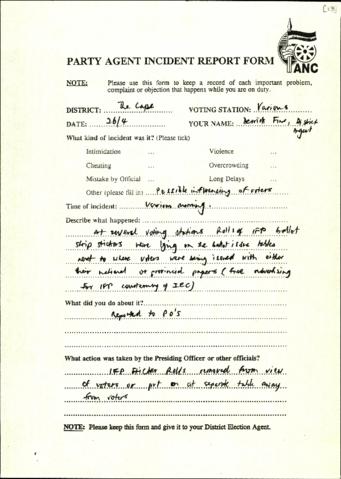 [18]
ANC
PARTY AGENT INCIDENT REPORT FORM
NOTE: Please use this form to keep a record of each important problem,
complaint or objection that happens while you are on duty.
DISTRICT: The Cape VOTING STATION: Various
DATE: 26/4 YOUR NAME: District
Agent
What kind of incident was it? (Please tick)
Intimidation ... Violence ...
Cheating ... Overcrowding ...
Mistake by Official ... Long Delays ...
Other (please fill in) Possible influencing of voters
Time of incident: Various morning.
Describe what happened:
At several voting stations Rolls of IFP ballot
strip stickers were lying on the ballot issue tables
next to where voters were being issued with either
their national or provincial papers (free advertising
for IFP courtesy of IEC)
What did you do about it?
Reported to PO's
What action was taken by the Presiding Officer or other officials?
IFP Sticker Rolls removed from view
of voters or put on a separate table away
from voters
NOTE: Please keep this form and give it to your District Election Agent.